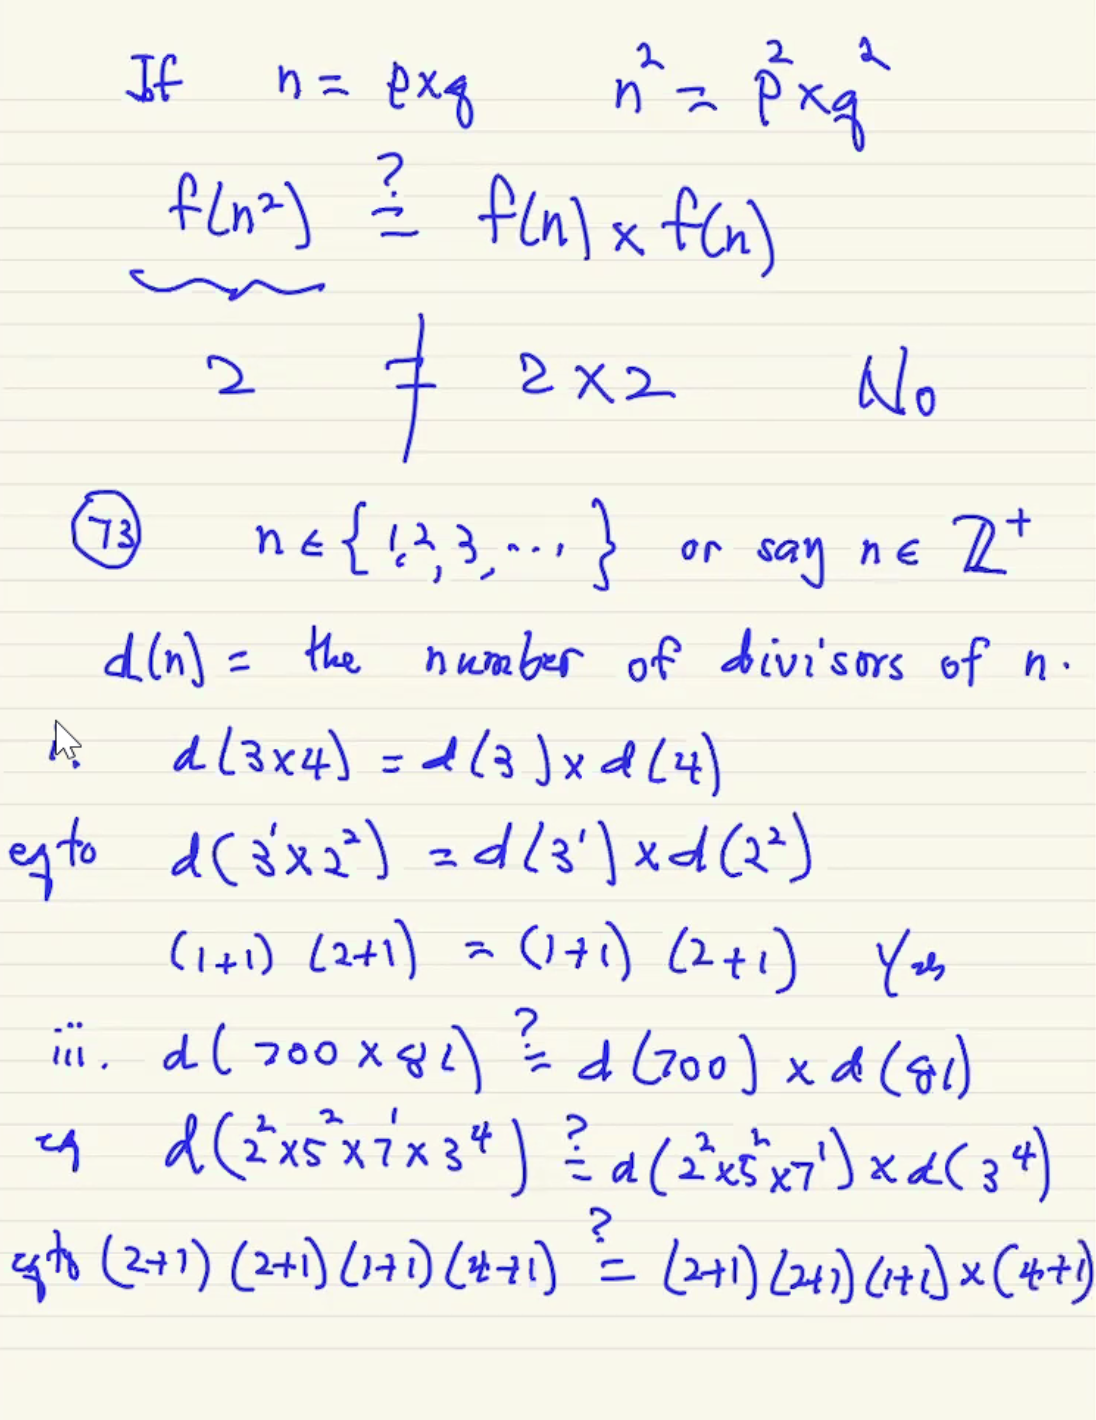 If n = p×q n² = p²×q²
f(n²) ?= f(n) × f(n)
2 ≠ 2×2 No
73 n ∈ {1, 2, 3, ...} or say n ∈ ℤ⁺
d(n) = the number of divisors of n.
i. d(3×4) = d(3) × d(4)
eq to d(3¹×2²) = d(3¹) × d(2²)
(1+1) (2+1) = (1+1) (2+1) Yes
iii. d(700 × 81) ?= d(700) × d(81)
eq d(2²×5²×7¹×3⁴) ?= d(2²×5²×7¹) × d(3⁴)
eq to (2+1) (2+1) (1+1) (4+1) ?= (2+1) (2+1) (1+1) × (4+1)